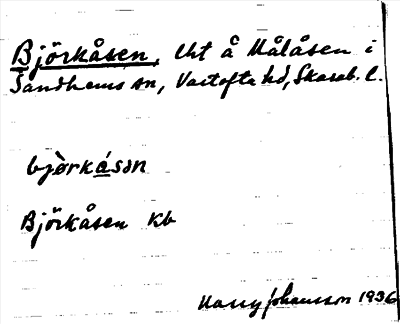 Björkåsen, lht å Målåsen i
Sandhems sn, Vartofta hd, Skarab. l.
bjòrkásan
Björkåsen kb
Harry Johansson 1936